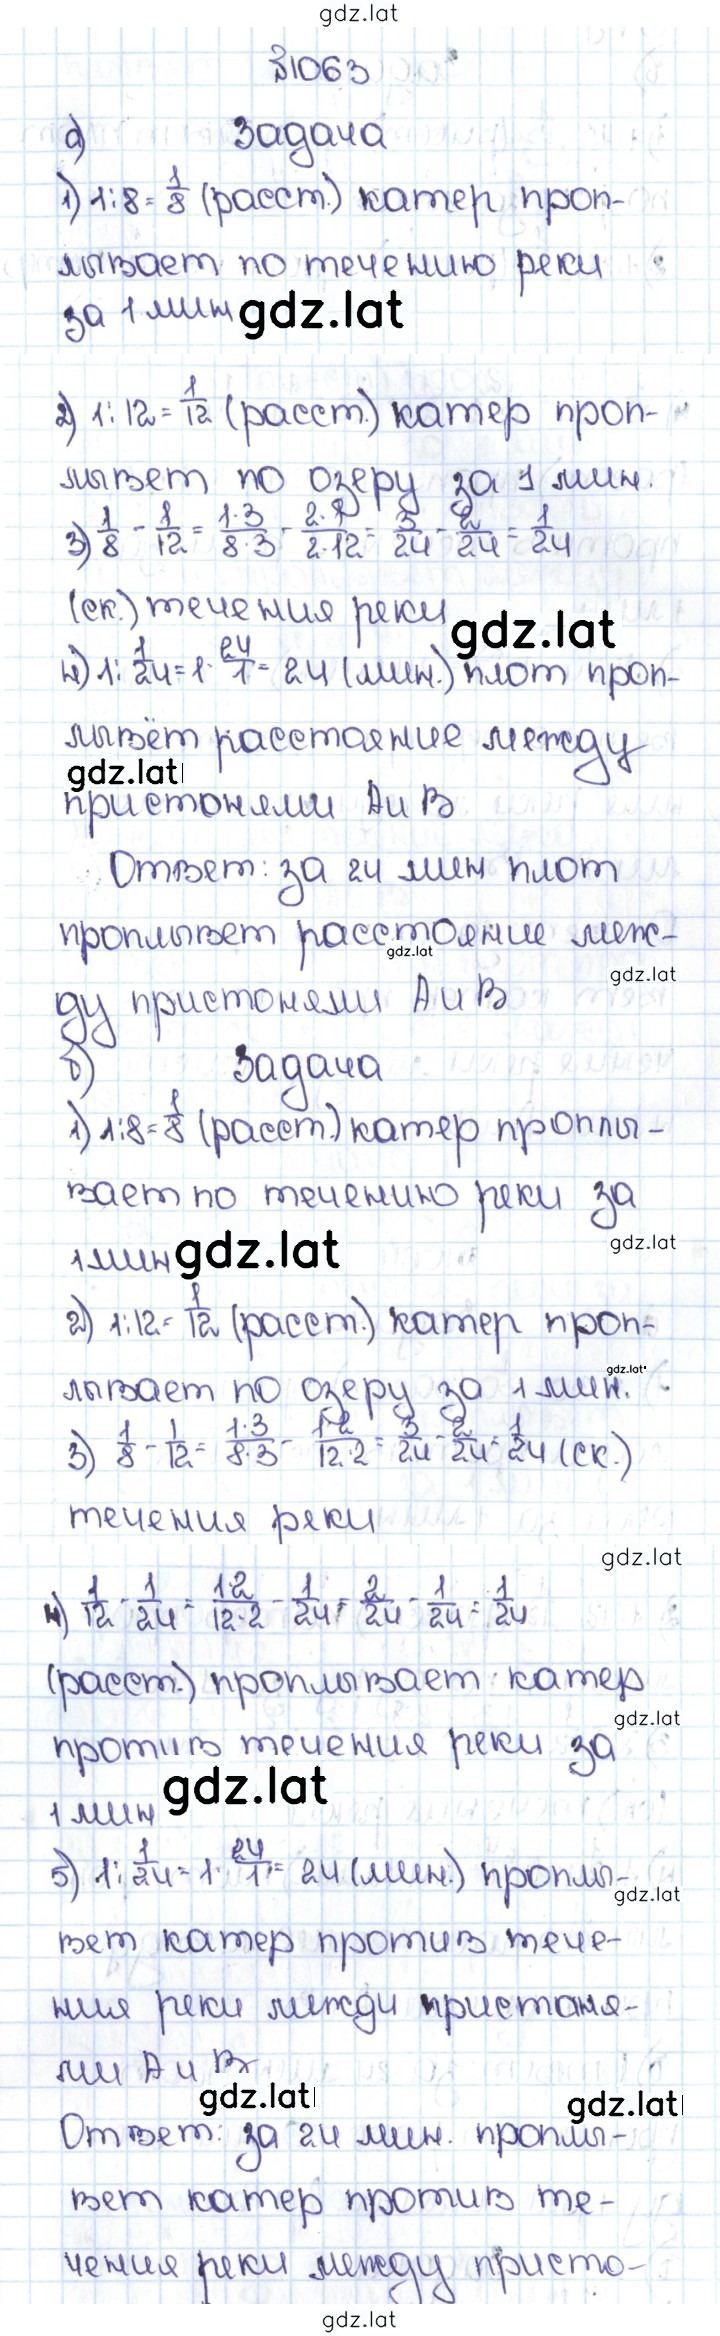 gdz.lat
№1063
а) Задача
1) 1:8=1/8 (расст.) катер проп-
лывает по течению реки
за 1 мин gdz.lat
2) 1:12=1/12 (расст.) катер проп-
лывет по озеру за 1 мин.
3) 1/8 - 1/12 = 1·3/8·3 - 2·1/2·12 = 3/24 - 2/24 = 1/24
(ск.) течения реки gdz.lat
4) 1:1/24=1·24/1=24 (мин.) плот проп-
лывёт расстояние между
gdz.lat
пристонями А и В
Ответ: за 24 мин плот
проплывет расстояние меж-
gdz.lat
gdz.lat
ду пристонями А и В
б) Задача
1) 1:8=1/8 (расст.) катер проплы-
вает по течению реки за
1 мин gdz.lat gdz.lat
2) 1:12=1/12 (расст.) катер проп-
gdz.lat
лывает по озеру за 1 мин.
3) 1/8 - 1/12 = 1·3/8·3 - 1·2/12·2 = 3/24 - 2/24 = 1/24 (ск.)
течения реки
gdz.lat
4) 1/12 - 1/24 = 1·2/12·2 - 1/24 = 2/24 - 1/24 = 1/24
(расст.) проплывает катер
gdz.lat
против течения реки за
1 мин gdz.lat
5) 1:1/24=1·24/1=24 (мин.) проплы-
gdz.lat
вет катер против тече-
ния реки между пристаня-
ми А и В
gdz.lat gdz.lat
Ответ: за 24 мин. проплы-
вет катер против те-
чения реки между присто-
gdz.lat